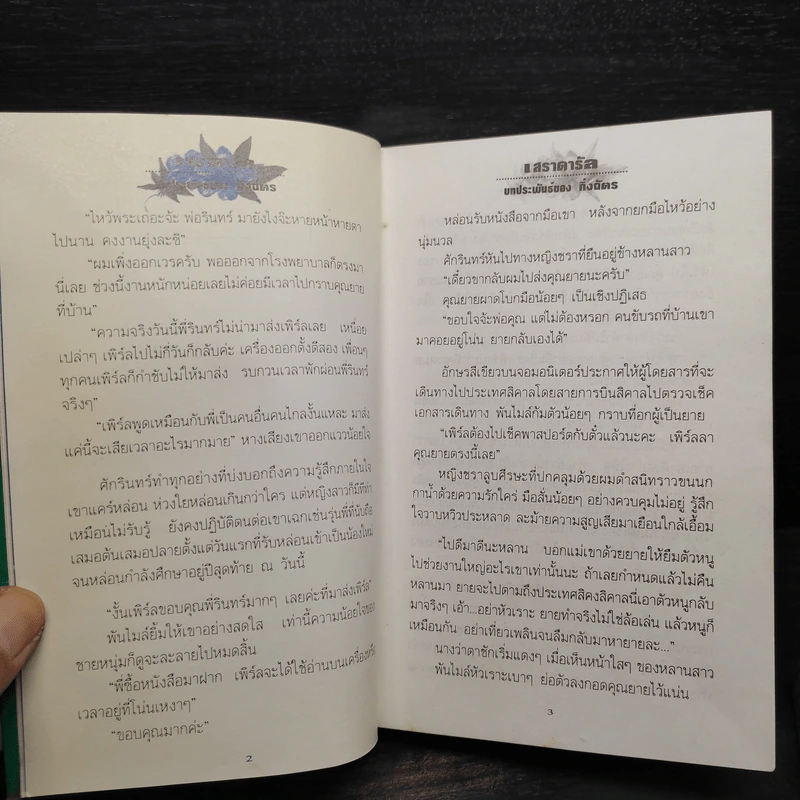 “ไหว้พระเถอะจ้ะ พ่อรินทร์ มายังไงจ๊ะหายหน้าหายตา
ไปนาน คงงานยุ่งละซิ”
“ผมเพิ่งออกเวรครับ พอออกจากโรงพยาบาลก็ตรงมา
นี่เลย ช่วงนี้งานหนักหน่อยเลยไม่ค่อยมีเวลาไปกราบคุณยาย
ที่บ้าน”
“ความจริงวันนี้พี่รินทร์ไม่น่ามาส่งเพิร์ลเลย เหนื่อย
เปล่าๆ เพิร์ลไปไม่กี่วันก็กลับค่ะ เครื่องออกตั้งตีสอง เพื่อนๆ
ทุกคนเพิร์ลก็กำชับไม่ให้มาส่ง รบกวนเวลาพักผ่อนพี่รินทร์
จริงๆ”
“เพิร์ลพูดเหมือนกับพี่เป็นคนอื่นคนไกลงั้นแหละ มาส่ง
แค่นี้จะเสียเวลาอะไรมากมาย” หางเสียงเขาออกแววน้อยใจ
ศักรินทร์ทำทุกอย่างที่บ่งบอกถึงความรู้สึกภายในใจ
เขาแคร์หล่อน ห่วงใยหล่อนเกินกว่าใคร แต่หญิงสาวก็มีทีท่า
เหมือนไม่รับรู้ ยังคงปฏิบัติตนต่อเขาเฉกเช่นรุ่นพี่ที่นับถือ
เสมอต้นเสมอปลายตั้งแต่วันแรกที่รับหล่อนเข้าเป็นน้องใหม่
จนหล่อนกำลังศึกษาอยู่ปีสุดท้าย ณ วันนี้
“งั้นเพิร์ลขอบคุณพี่รินทร์มากๆ เลยค่ะที่มาส่งเพิร์ล”
พันไมล์ยิ้มให้เขาอย่างสดใส เท่านี้ความน้อยใจของ
ชายหนุ่มก็ดูจะละลายไปหมดสิ้น
“พี่ซื้อหนังสือมาฝาก เพิร์ลจะได้ใช้อ่านบนเครื่องหรือ
เวลาอยู่ที่โน่นเหงาๆ”
“ขอบคุณมากค่ะ”
2
เสราดารัล
บทประพันธ์ของ กิ่งฉัตร
หล่อนรับหนังสือจากมือเขา หลังจากยกมือไหว้อย่าง
นุ่มนวล
ศักรินทร์หันไปทางหญิงชราที่ยืนอยู่ข้างหลานสาว
“เดี๋ยวขากลับผมไปส่งคุณยายนะครับ”
คุณยายผาดโบกมือน้อยๆ เป็นเชิงปฏิเสธ
“ขอบใจจ้ะพ่อคุณ แต่ไม่ต้องหรอก คนขับรถที่บ้านเขา
มาคอยอยู่โน่น ยายกลับเองได้”
อักษรสีเขียวบนจอมอนิเตอร์ประกาศให้ผู้โดยสารที่จะ
เดินทางไปประเทศสิคาลโดยสายการบินสิคาลไปตรวจเช็ค
เอกสารเดินทาง พันไมล์ก้มตัวน้อยๆ กราบที่อกผู้เป็นยาย
“เพิร์ลต้องไปเช็คพาสปอร์ตกับตั๋วแล้วนะคะ เพิร์ลลา
คุณยายตรงนี้เลย”
หญิงชราลูบศีรษะที่ปกคลุมด้วยผมดำสนิทราวขนนก
กาน้ำด้วยความรักใคร่ มือสั่นน้อยๆ อย่างควบคุมไม่อยู่ รู้สึก
ใจวาบหวิวประหลาด ละม้ายความสูญเสียมาเยือนใกล้เอื้อม
“ไปดีมาดีนะหลาน บอกแม่เขาด้วยยายให้ยืมตัวหนู
ไปช่วยงานใหญ่อะไรเขาเท่านั้นนะ ถ้าเลยกำหนดแล้วไม่คืน
หลานมา ยายจะไปตามถึงประเทศสิคงสิคาลนี่เอาตัวหนูกลับ
มาจริงๆ เอ้า...อย่าหัวเราะ ยายทำจริงไม่ใช่ล้อเล่น แล้วหนูก็
เหมือนกัน อย่าเที่ยวเพลินจนลืมกลับมาหายายละ...”
นางว่าตาชักเริ่มแดงๆ เมื่อเห็นหน้าใสๆ ของหลานสาว
พันไมล์หัวเราะเบาๆ ย่อตัวลงกอดคุณยายไว้แน่น
3